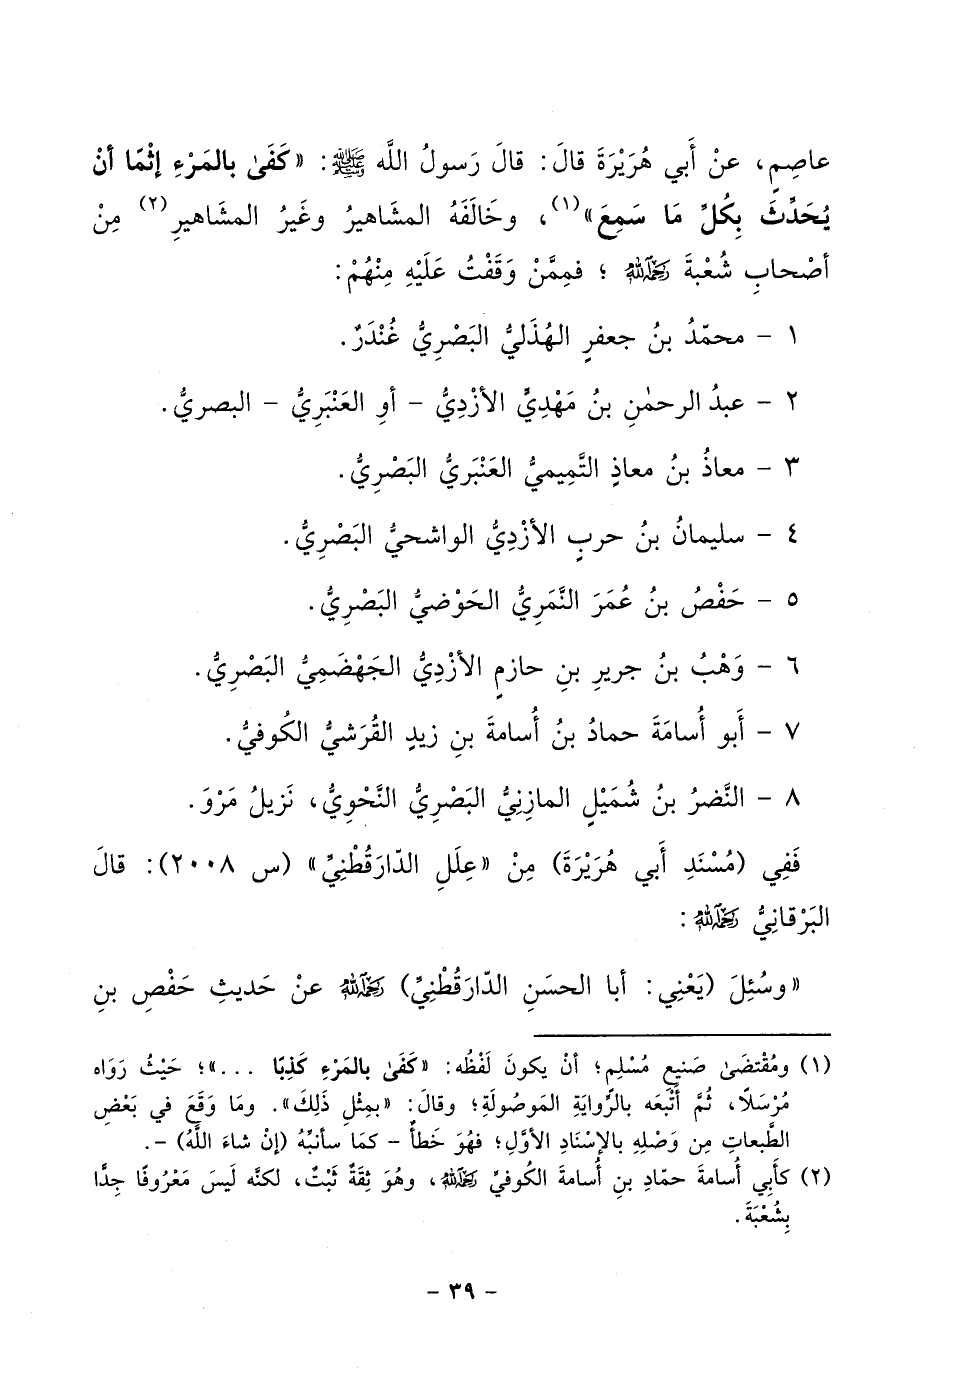 عاصِمٍ، عنْ أَبي هُرَيْرَةَ قالَ: قالَ رَسولُ اللَّه ﷺ: «كَفَىٰ بالمَرْءِ إثْمًا أنْ
يُحَدِّثَ بِكُلِّ مَا سَمِعَ»(١)، وخَالَفَهُ المشَاهيرُ وغَيرُ المشَاهيرِ(٢) مِنْ
أصْحابِ شُعْبةَ رَحِمَهُ اللَّهُ ؛ فمِمَّنْ وَقَفْتُ عَلَيْهِ مِنْهُمْ:
١ - محمّدُ بنُ جعفرٍ الهُذَليُّ البَصْرِيُّ غُنْدَرٌ.
٢ - عبدُ الرحمٰنِ بنُ مَهْدِيٍّ الأزْدِيُّ - أوِ العَنْبَرِيُّ - البصريُّ.
٣ - معاذُ بنُ معاذٍ التَّمِيميُّ العَنْبَريُّ البَصْرِيُّ.
٤ - سليمانُ بنُ حربٍ الأزْدِيُّ الواشحيُّ البَصْرِيُّ.
٥ - حَفْصُ بنُ عُمَرَ النَّمَرِيُّ الحَوْضيُّ البَصْرِيُّ.
٦ - وَهْبُ بنُ جريرِ بنِ حازمٍ الأزْدِيُّ الجَهْضَمِيُّ البَصْرِيُّ.
٧ - أَبو أُسامَةَ حمادُ بنُ أُسامةَ بنِ زيدٍ القُرَشيُّ الكُوفيُّ.
٨ - النَّضرُ بنُ شُمَيْلٍ المازِنِيُّ البَصْرِيُّ النَّحْوِيُّ، نَزيلُ مَرْوَ.
فَفِي (مُسْنَدِ أَبي هُرَيْرَةَ) مِنْ «عِلَلِ الدّارَقُطْنِيِّ» (س ٢٠٠٨): قالَ
البَرْقانِيُّ رَحِمَهُ اللَّهُ :
«وسُئِلَ (يَعْنِي: أبا الحسَنِ الدّارَقُطْنِيِّ) رَحِمَهُ اللَّهُ عنْ حَديثِ حَفْصِ بنِ
(١) ومُقْتضَىٰ صَنيعِ مُسْلِمٍ؛ أنْ يكونَ لَفْظُه: «كَفَىٰ بالمَرْءِ كَذِبًا ...»؛ حَيْثُ رَوَاه
مُرْسَلًا، ثُمَّ أَتْبَعَه بالرِّوايَةِ المَوصُولَةِ؛ وقالَ: «بمِثْلِ ذَلِكَ». ومَا وَقَعَ في بَعْضِ
الطَّبعاتِ مِن وَصْلِهِ بالإسْنَادِ الأوَّلِ؛ فهُوَ خَطأٌ - كمَا سأنبِّهُ (إنْ شاءَ اللَّهُ) -.
(٢) كأَبِي أُسامةَ حمّادِ بنِ أُسامةَ الكُوفيِّ رَحِمَهُ اللَّهُ، وهُوَ ثِقَةٌ ثَبْتٌ، لكنَّه لَيسَ مَعْرُوفًا جِدًّا
بِشُعْبَةَ.
- ٣٩ -